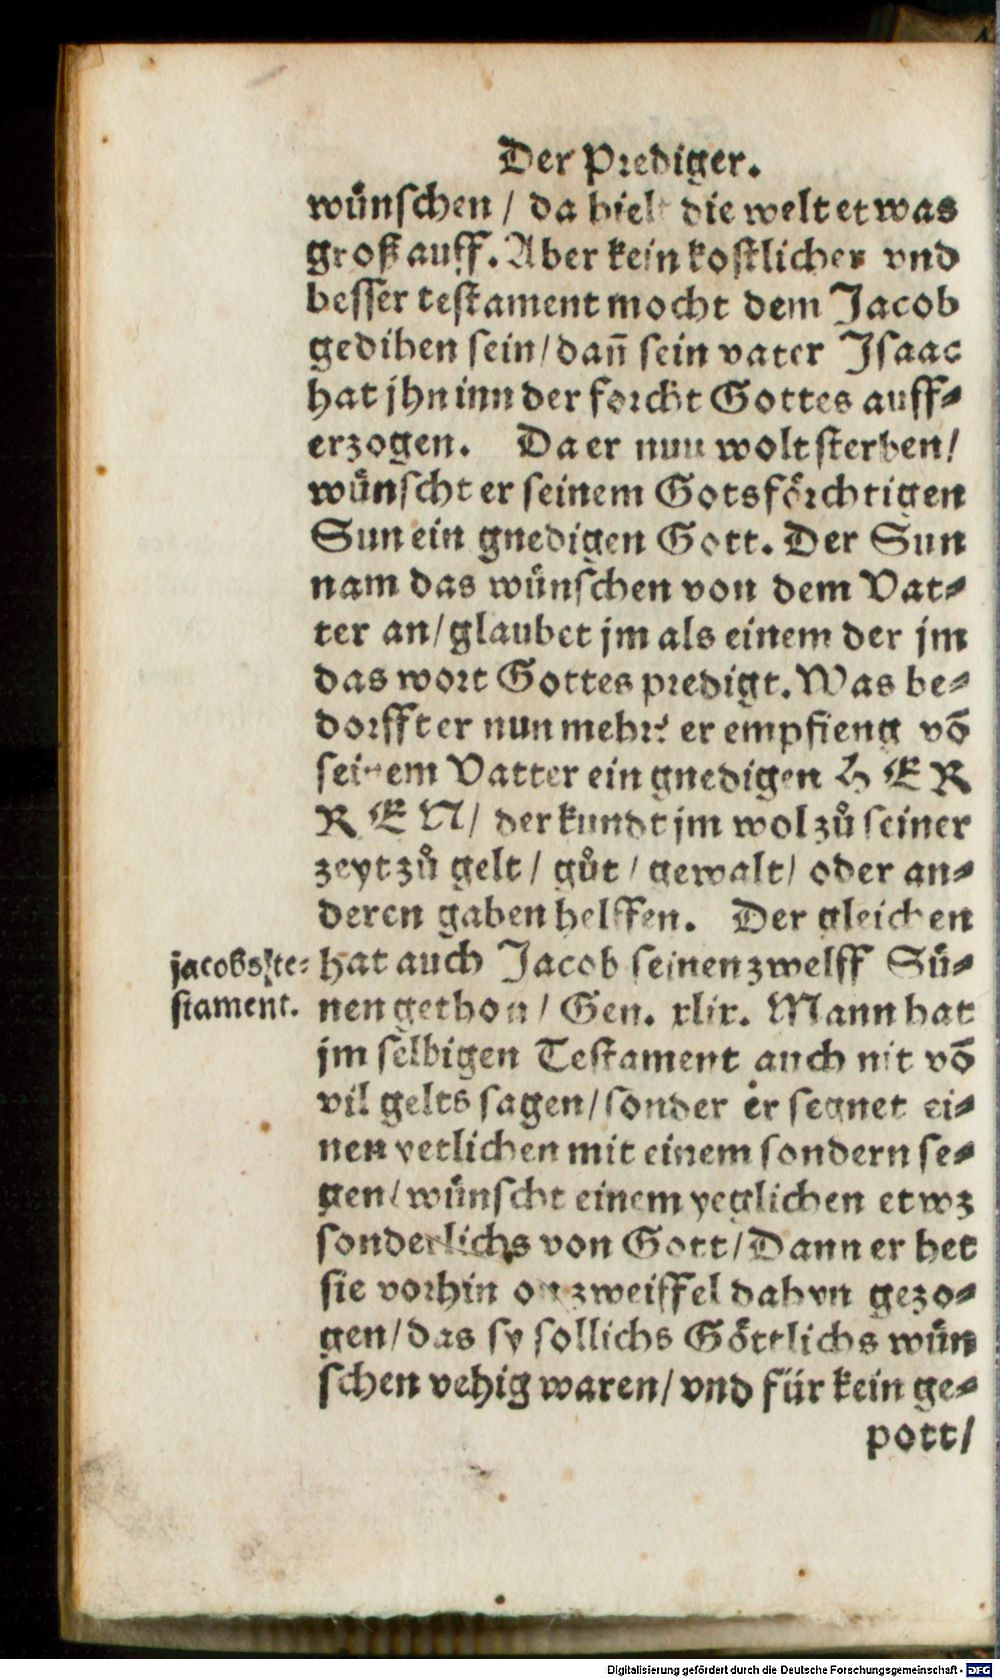 Der Prediger.
wünſchen / da hielt die welt etwas
groß auff. Aber kein koſtlicher vnd
beſſer teſtament mocht dem Jacob
gedihen ſein / dañ ſein vater Iſaac
hat jhn inn der forcht Gottes auff⸗
erzogen. Da er nun wolt ſterben /
wünſcht er ſeinem Gotsförchtigen
Sun ein gnedigen Gott. Der Sun
nam das wünſchen von dem Vat⸗
ter an / glaubet jm als einem der jm
das wort Gottes predigt. Was be⸗
dorfft er nun mehr? er empfieng vō
ſeinem Vatter ein gnedigen HER
REN / der kundt jm wol zů ſeiner
zeyt zů gelt / gůt / gewalt / oder an⸗
deren gaben helffen. Der gleichen
jacobs te⸗
ſtament.
hat auch Jacob ſeinen zwelff Sü⸗
nen gethon / Gen. xlix. Mann hat
jm ſelbigen Teſtament auch nit vō
vil gelts ſagen / ſonder er ſegnet ei⸗
nen yetlichen mit einem ſondern ſe⸗
gen / wünſcht einem yeglichen etwz
ſonderlichs von Gott / Dann er het
ſie vorhin on zweiffel dahyn gezo⸗
gen / das ſy ſollichs Göttlichs wün
ſchen vehig waren / vnd für kein ge⸗
pott /
Digitalisierung gefördert durch die Deutsche Forschungsgemeinschaft - DFG